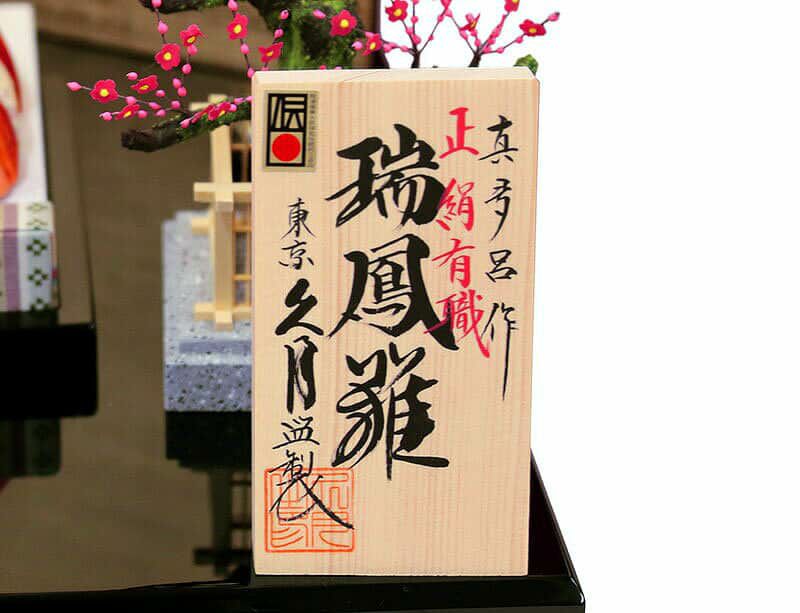 真多呂作
正絹有職
瑞鳳雛
東京久月監製
伝